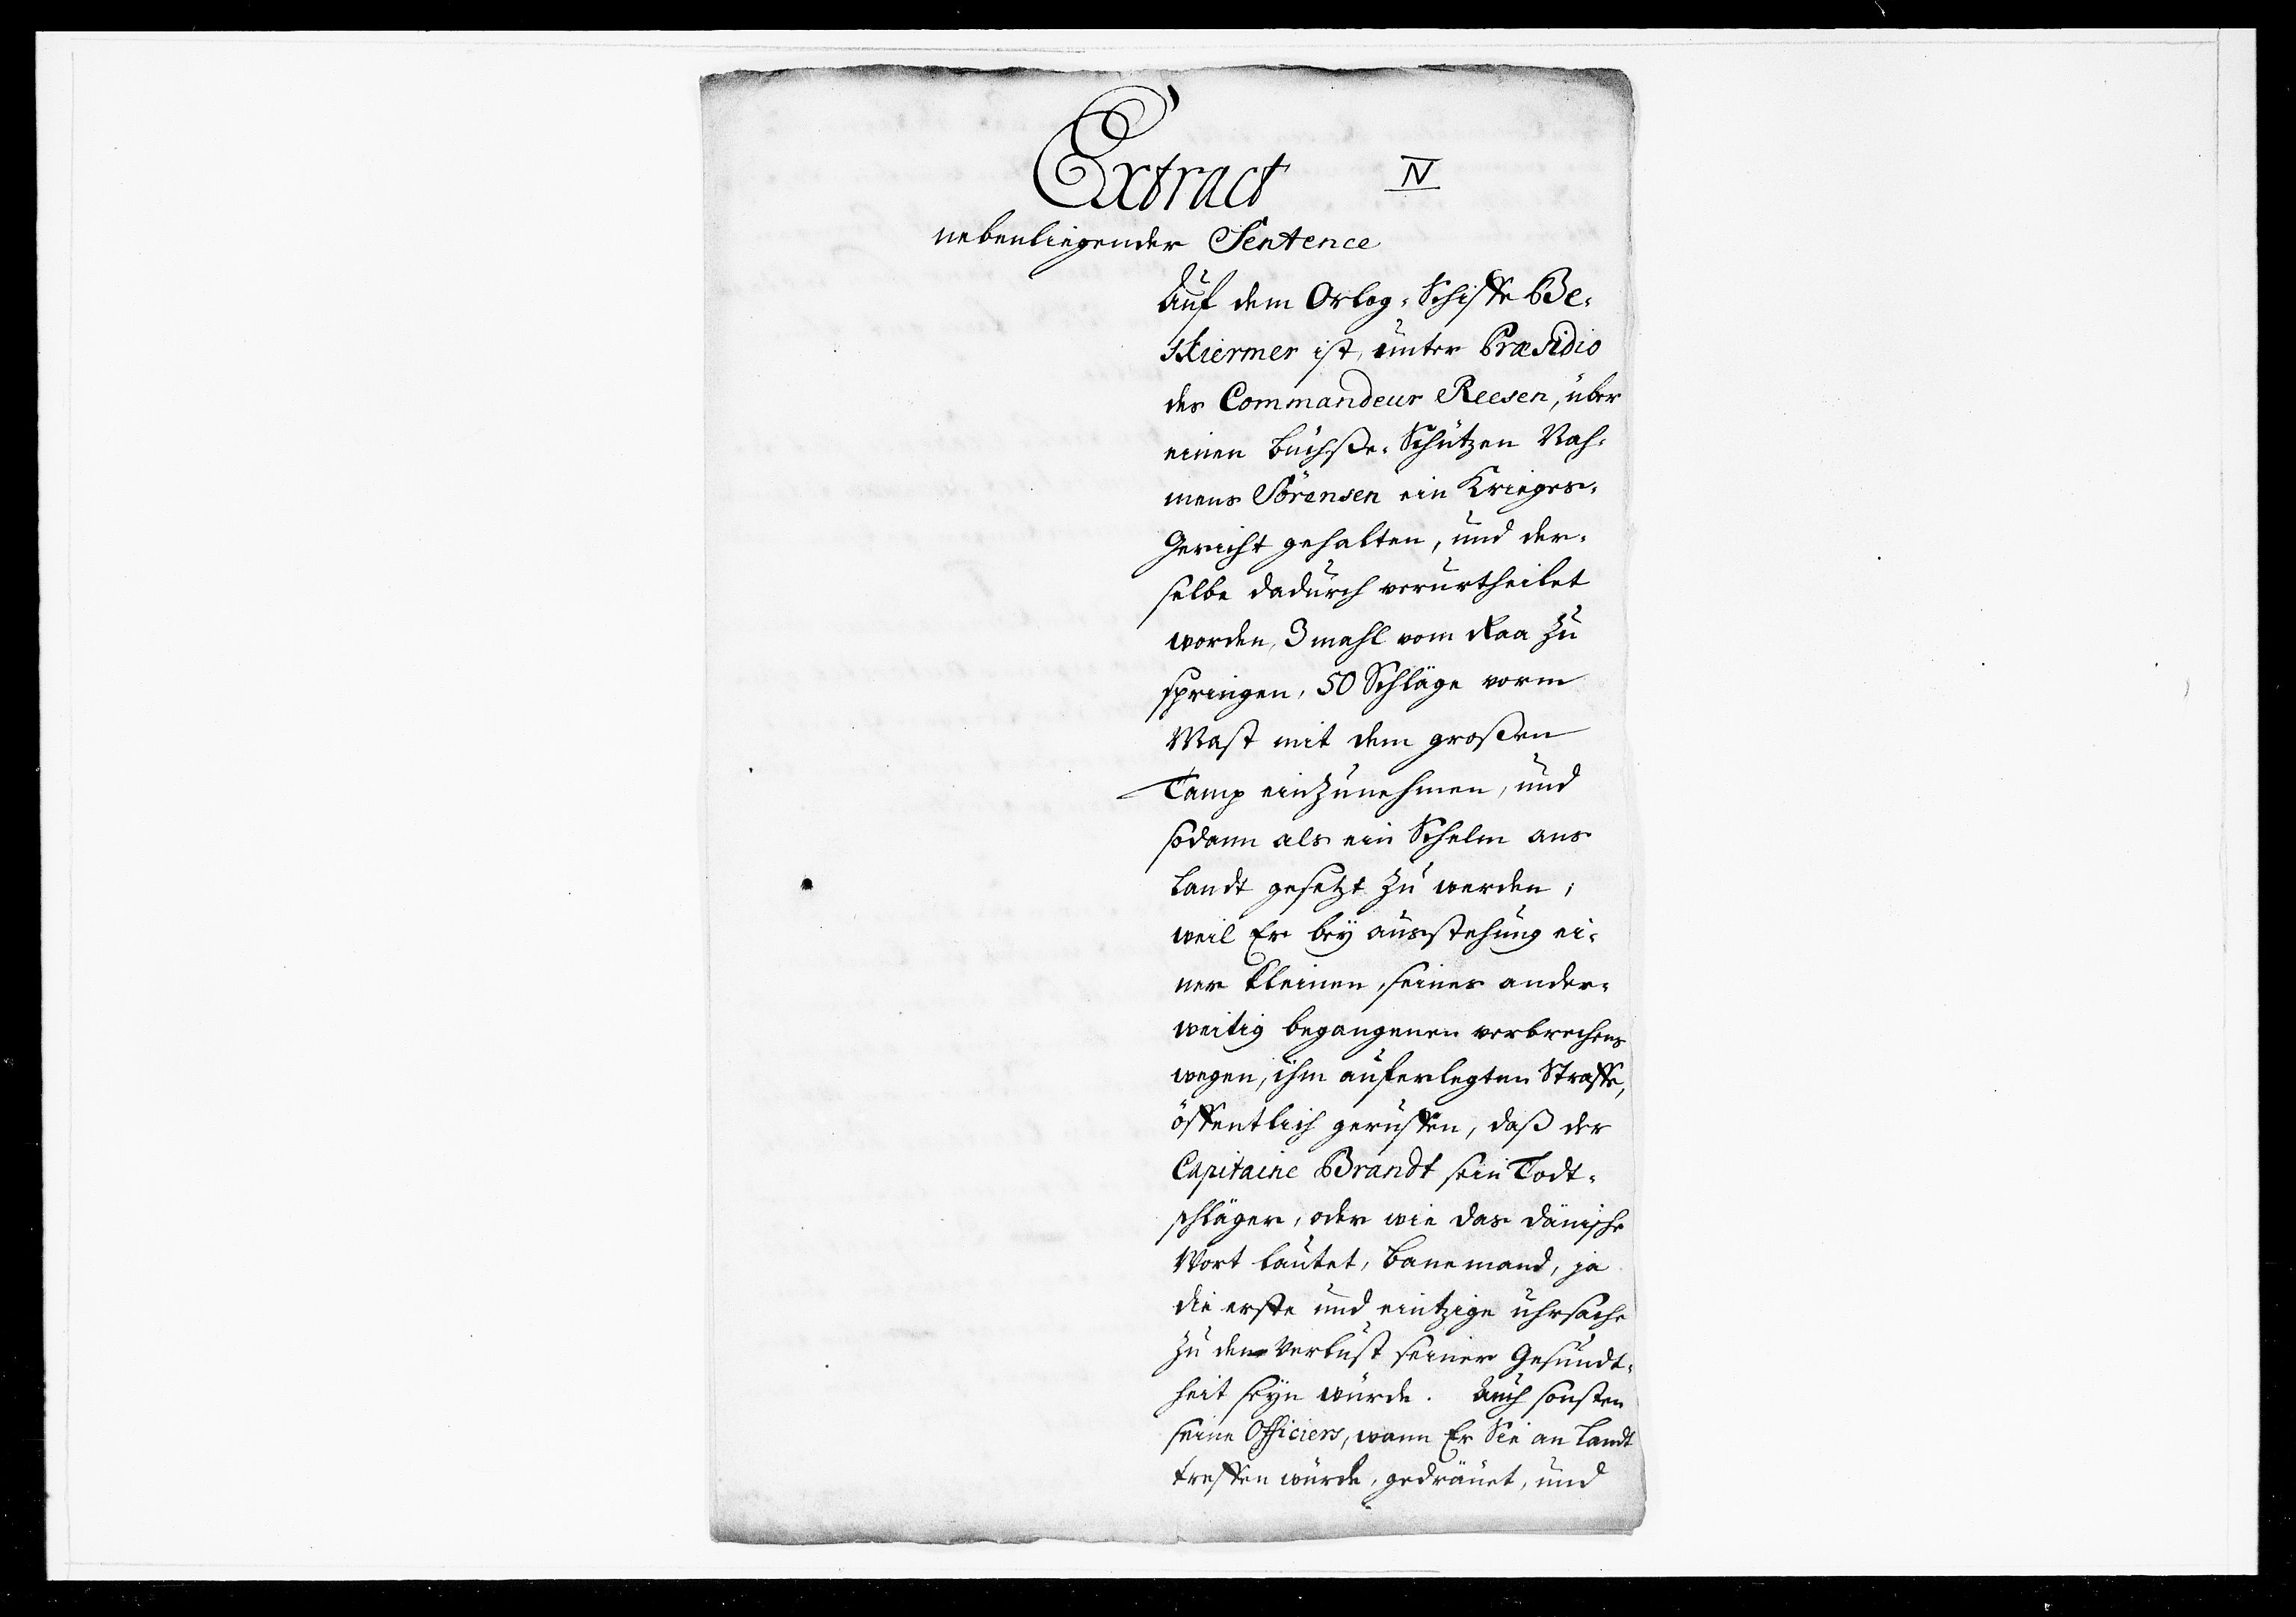 Extract IV
nebenliegender Sentence
Auf dem Orlog-Schiffe Be-
skiermer ist, unter Præsidio
des Commandeur Reesen, über
einen Büchse-Schützen Nah-
mens Sörensen ein Krieges-
Gericht gehalten, und der-
selbe dadurch verurtheilet
worden, 3 mahl vom Raa zu
springen, 50 Schläge vorm
Mast mit dem großen
Tamp einzunehmen, und
sodann als ein Schelm ans
Landt gesetzt zu werden;
weil Er bey ausstehung ei-
ner kleinen, seines ander-
weitig begangenen verbrechens
wegen, ihm auferlegten Straffe,
öffentlich geruffen, daß der
Capitaine Brandt sein Todt-
schläger, oder wie das dänische
Wort lautet, Banemand, ja
die erste und eintzige uhrsache
zu dem Verlust seiner Gesundt-
heit seyn würde. Auch sonsten
seine Officiers, wann Er Sie an Landt
treffen würde, gedräuet, und